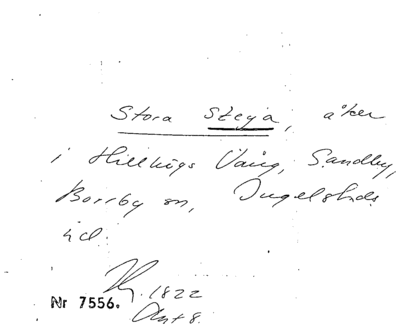 Stora Steja, åker
i Hillhögs Vång, Sandby,
Borrby sn, Ingelstads
hd.
1822
Nr 7556.
Akt 8.